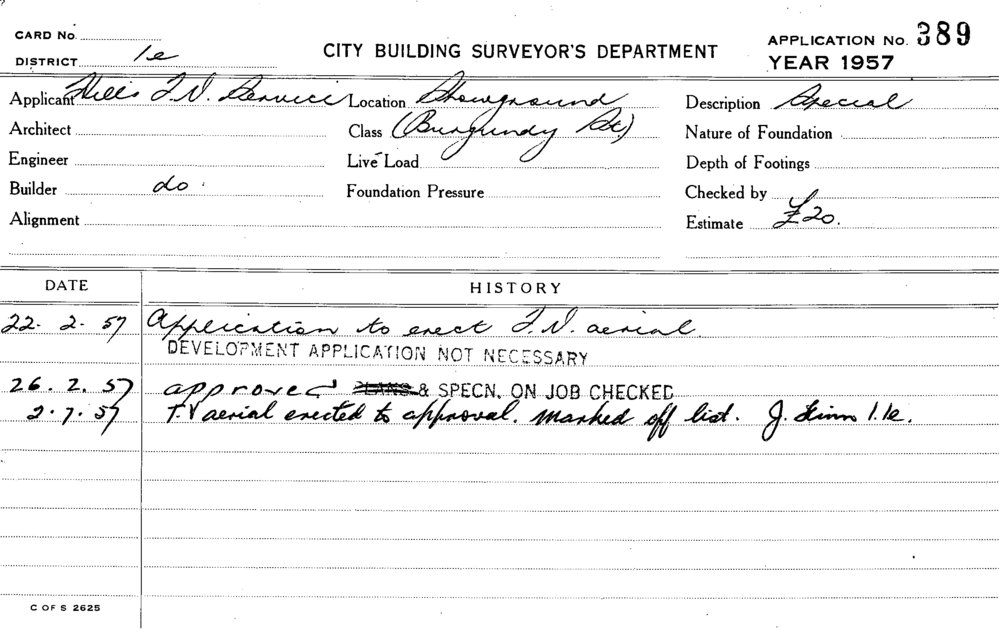 CARD No.
DISTRICT 1e
CITY BUILDING SURVEYOR'S DEPARTMENT
APPLICATION No. 389
YEAR 1957
Applicant Hills T.V. Service Location Showground Description Special
Architect Class (Burgundy St) Nature of Foundation
Engineer Live Load Depth of Footings
Builder do. Foundation Pressure Checked by
Alignment Estimate £20.
DATE HISTORY
22. 2. 57 Application to erect T.V. aerial.
DEVELOPMENT APPLICATION NOT NECESSARY
26. 2. 57 approved PLANS & SPECN. ON JOB CHECKED
2. 7. 57 T.V aerial erected to approval. Marked off list. J. 1.1e.
C OF S 2625